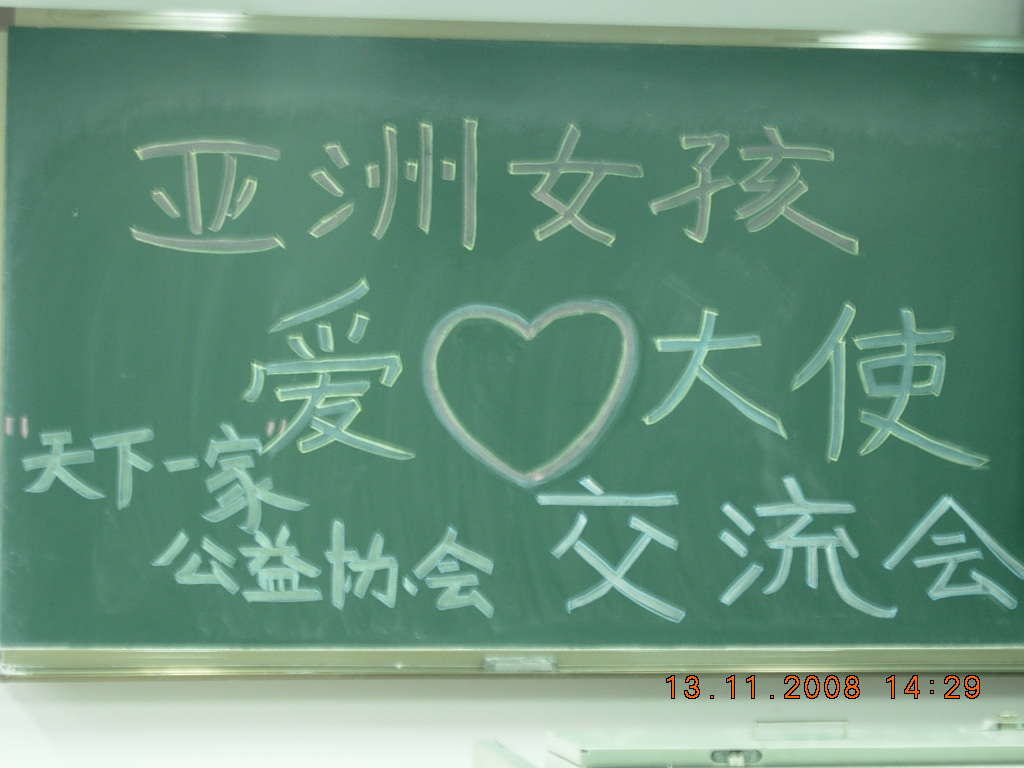 亚洲女孩
爱♡大使
天下一家
公益协会
交流会
13.11.2008 14:29